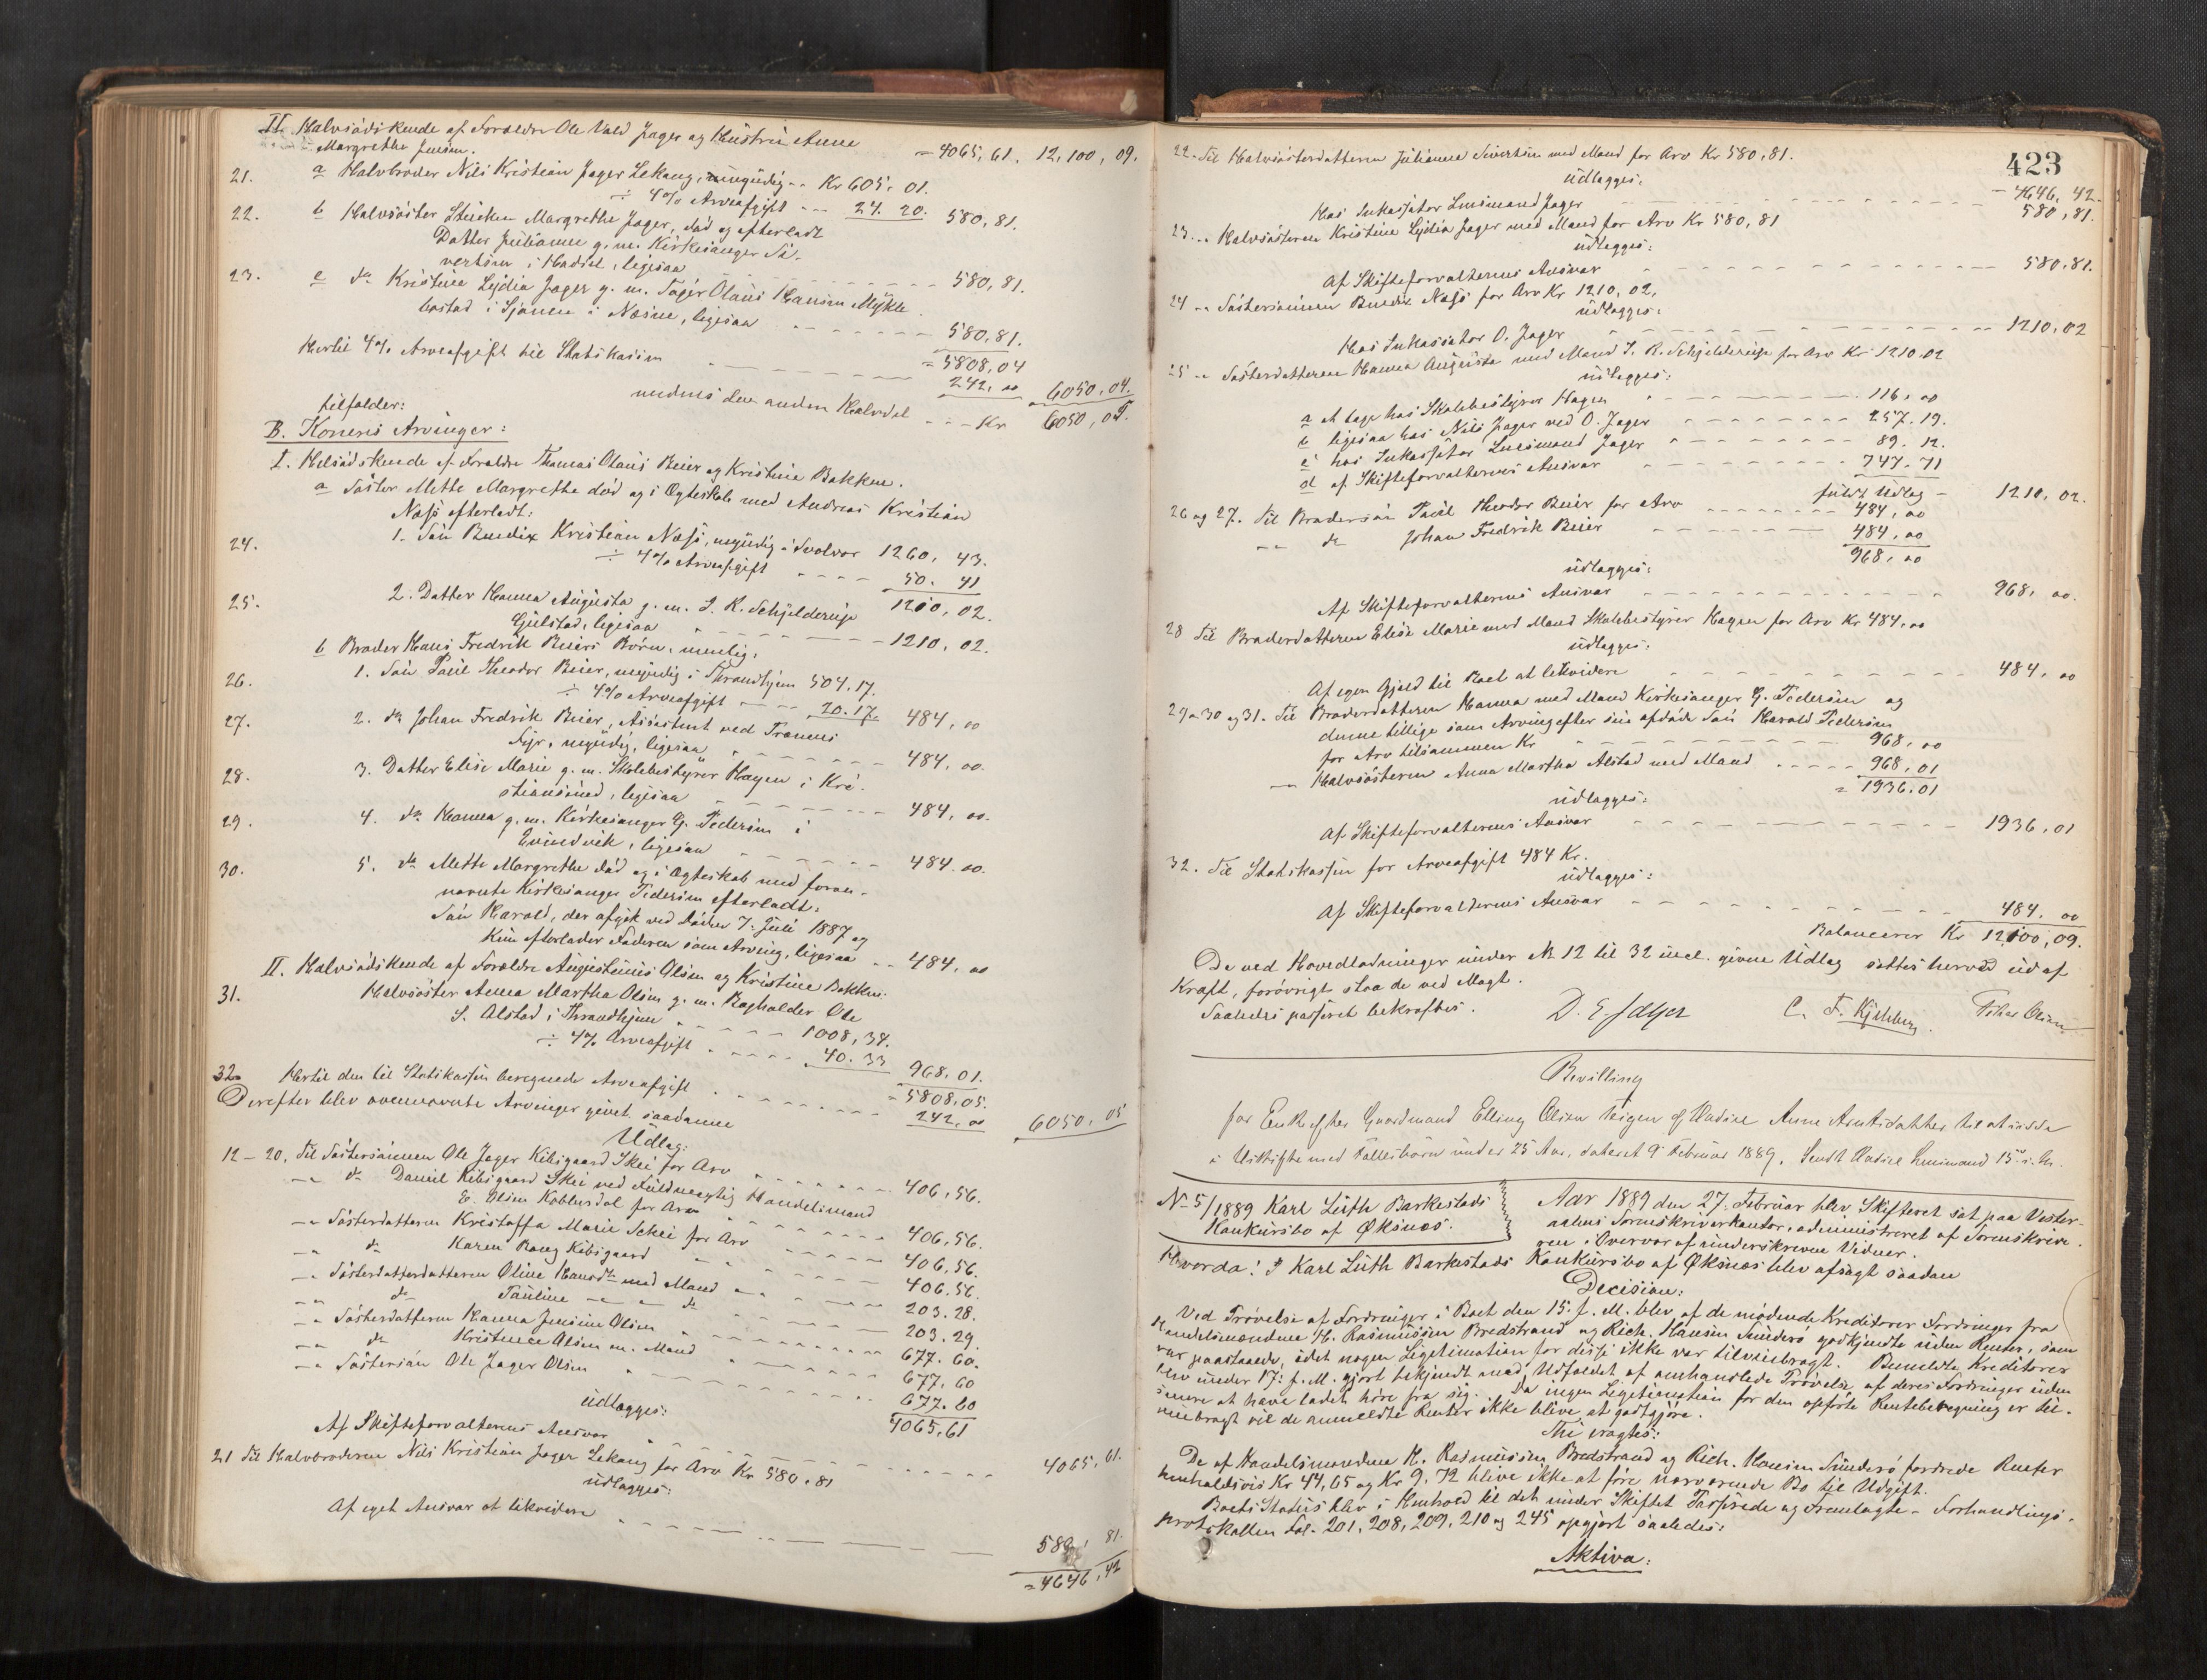 II Halvsødskende af Forældre Ole Vold Jager og Hustru Anne
Margrethe Jensen. — 4065,61. 12,100,09.
21. a Halvbroder Nils Kristian Jager Lekang, umyndig -- Kr 605,01.
÷ 4% Arveafgift --- 24.20. 580,81.
22. b Halvsøster Margrethe Jager, død og efterladt
Datter Julianne g. m. Kirkesanger Si-
vertsen i Hadsel, ligesaa 580,81.
23. c do Kristine Lydia Jager g. m. Olaus Hansen Mykle-
bostad i Sjonen i Næsne, ligesaa 580,81.
= 5808,04
Hertil 4% Arveafgift til Statskassen 242,00 6050,04.
medens den anden Halvdel --- Kr 6050,05.
tilfalder:
B. Konens Arvinger:
I. Helsødskende af Forældre Thomas Olaus Beier og Kristine Bakken.
a Søster Mette Margrethe død og i Ægteskab med Andreas Kristian
Næsø efterladt:
24. 1. Søn Bendix Kristian Næsø, myndig i Svolvær 1260,43.
÷ 4% Arveafgift ---- 50.41
1210,02.
25. 2. Datter Hanna Augusta g. m. J. R. Schjelderup
Gjelstad, ligesaa 1210,02.
b Broder Hans Fredrik Beiers Børn, nemlig:
26. 1. Søn Paul Theodor Beier, myndig i Throndhjem 504,17.
÷ 4% Arveafgift --- 20.17. 484,00
27. 2. do Johan Fredrik Beier, Assistent ved Trænens
Fyr, myndig, ligesaa 484,00.
28. 3. Datter Elise Marie g. m. Skolebestyrer Hagen i Kri-
stiansund, ligesaa 484,00.
29. 4. do Hanna g. m. Kirkesanger G. Pedersen i
Evindvik, ligesaa 484.00.
30. 5. do Mette Margrethe død og i Ægteskab med foran-
nævnte Kirkesanger Pedersen efterladt:
Søn Harald, der afgik ved Døden 7. Juli 1887 og
kun efterlader Faderen som Arving, ligesaa -- 484,00
II. Halvsødskende af Forældre Augustinus Olsen og Kristine Bakken.
31. Halvsøster Anna Martha Olsen g. m. Bagholder Ole
S. Alstad i Throndhjem 1008,34.
÷ 4% Arveafgift 40.33 968,01.
= 5808,05.
32. Hertil den til Statskassen beregnede Arveafgift 242,00 6050,05
Derefter blev ovennævnte Arvinger givet saadanne
Udlæg:
12 — 20. Til Søstersønnen Ole Jager Kibsgaard Skei for Arv 406,56.
-"- do Daniel Kibsgaard Skei ved Fuldmægtig Handelsmand
E. Olsen Kobbersdal for Arv 406,56.
-"- Søsterdatteren Kristoffa Marie Schei for Arv 406,56.
-"- do Karen Bang Kibsgaard 406.56.
-"- Søsterdatterdatteren Oline Hansdtr med Mand 203.28.
-"- do Pauline -"- do 203.29.
-"- Søsterdatteren Hanna Jensine Olsen 677.60.
-"- do Kristence Olsen m. Mand 677,60
-"- Søstersøn Ole Jager Olsen 677.60
4065,61
udlægges:
Af Skifteforvalterens Ansvar 4065,61.
21 Til Halvbroderen Nils Kristian Jager Lekang for Arv Kr 580,81
udlægges:
Af eget Ansvar at likvidere 580,81.
= 4646,42
423
— 4646,42.
22. Til Halvsøsterdatteren Julianne Sivertsen med Mand for Arv Kr 580,81.
udlægges:
Hos Inkassator Lensmand Jager 580,81.
23. -"- Halvsøsteren Kristine Lydia Jager med Mand for Arv Kr 580,81
udlægges:
Af Skifteforvalterens Ansvar 580,81.
24 -"- Søstersønnen Bendix Næsø for Arv Kr 1210,02,
udlægges:
Hos Inkassator O. Jager 1210,02
25 -"- Søsterdatteren Hanna Augusta med Mand J. R. Schjelderup for Arv Kr 1210,02
udlægges:
a at tage hos Skolebestyrer Hagen 116,00
b ligesaa hos Nils Jager ved O. Jager 257.19.
c hos Inkassator Lensmand Jager 89.12.
d af Skifteforvalterens Ansvar 747.71
fuldt Udlæg — 1210,02.
26 og 27. Til Brodersøn Paul Theodor Beier for Arv 484,00
-"- do Johan Fredrik Beier 484,00
968,00
udlægges:
Af Skifteforvalterens Ansvar 968,00.
28 Til Broderdatteren Elise Marie med Mand Skolebestyrer Hagen for Arv Kr 484,00
udlægges:
Af egen Gjæld til Boet at likvidere 484,00
29, 30 og 31. Til Broderdatteren Hanna med Mand Kirkesanger G. Pedersen og
denne tillige som Arving efter sin afdøde Søn Harald Pedersen
for Arv tilsammen Kr 968,00
-"- Halvsøsteren Anna Martha Alstad med Mand 968,01
= 1936.01
udlægges:
Af Skifteforvalterens Ansvar 1936,01
32. Til Statskassen for Arveafgift 484 Kr.
udlægges:
Af Skifteforvalterens Ansvar 484,00
Balancerer Kr 12,100,09.
De ved Hovedlodninger under No 12 til 32 incl. givne Udlæg sættes herved ud af
Kraft, forøvrigt staa de ved Magt.
Saaledes passeret bekræftes. C. F. Kjelsberg
Bevilling
for Enke efter Gaardmand Elling Olsen Teigen af Hadsel Anne Arntsdatter til at sidde
i Uskifte med Fællesbørn under 25 Aar, dateret 9 Februar 1889. Sendt Hadsel Lensmand 15. s. M.
No 5/1889 Karl Lüth Barkestads
Konkursbo af Øksnæs.
Aar 1889 den 27. Februar blev Skifteret sat paa Vester-
aalens Sorenskriverkontor, administreret af Sorenskrive-
ren i Overvær af underskrevne Vidner.
Hvorda: I Karl Lüth Barkestads Konkursbo af Øksnæs blev afsagt saadan
Decision:
Ved Prøvelse af Fordringer i Boet den 15. f. M. blev af de mødende Kreditorer Fordringer fra
Handelsmændene H. Rasmussen Bredstrand og Rich. Hansen Sunderø godkjendte uden Renter, som
var paastaaede, idet nogen Legitimation for disse ikke var tilveiebragt. Bemeldte Kreditorer
blev under 17. f. M. gjort bekjendt med Udfaldet af omhandlede Prøvelse af deres Fordringer uden
senere at have ladet høre fra sig. Da ingen Legitimation for den opførte Renteberegning er til-
veiebragt vil de anmeldte Renter ikke blive at godtgjøre.
Thi eragtes:
De af Handelsmændene H. Rasmussen Bredstrand og Rich. Hansen Sunderø fordrede Renter
henholdsvis Kr 44,65 og Kr 9,72 blive ikke at føre nærværende Bo til Udgift.
Boets Status blev i Henhold til det under Skiftet Passerede og Fremlagte - Forhandlings-
protokollen Fol. 201, 208, 209, 210 og 245 opgjort saaledes:
Aktiva: